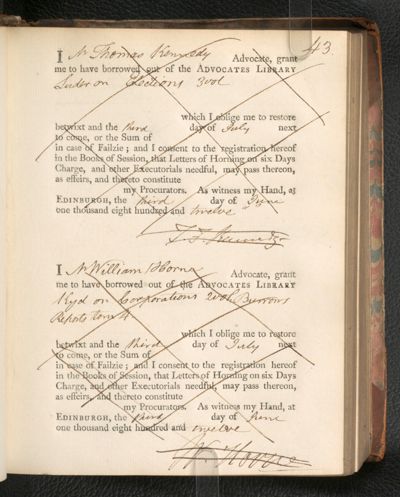 43.
I Mr Thomas Kennedy Advocate, grant
me to have borrowed out of the ADVOCATES LIBRARY
Luder on Elections 3vol
which I oblige me to restore
betwixt and the third day of July next
to come, or the Sum of
in case of Failzie; and I consent to the registration hereof
in the Books of Session, that Letters of Horning on six Days
Charge, and other Executorials needful, may pass thereon,
as effeirs, and thereto constitute
my Procurators. As witness my Hand, at
EDINBURGH, the third day of June
one thousand eight hundred and twelve
T. F. Kennedy
I Mr William Horne Advocate, grant
me to have borrowed out of the ADVOCATES LIBRARY
Kyd on Corporations 2vol. Burrows
Reports tom 4
which I oblige me to restore
betwixt and the third day of July next
to come, or the Sum of
in case of Failzie; and I consent to the registration hereof
in the Books of Session, that Letters of Horning on six Days
Charge, and other Executorials needful, may pass thereon,
as effeirs, and thereto constitute
my Procurators. As witness my Hand, at
EDINBURGH, the third day of June
one thousand eight hundred and twelve
W. Horne